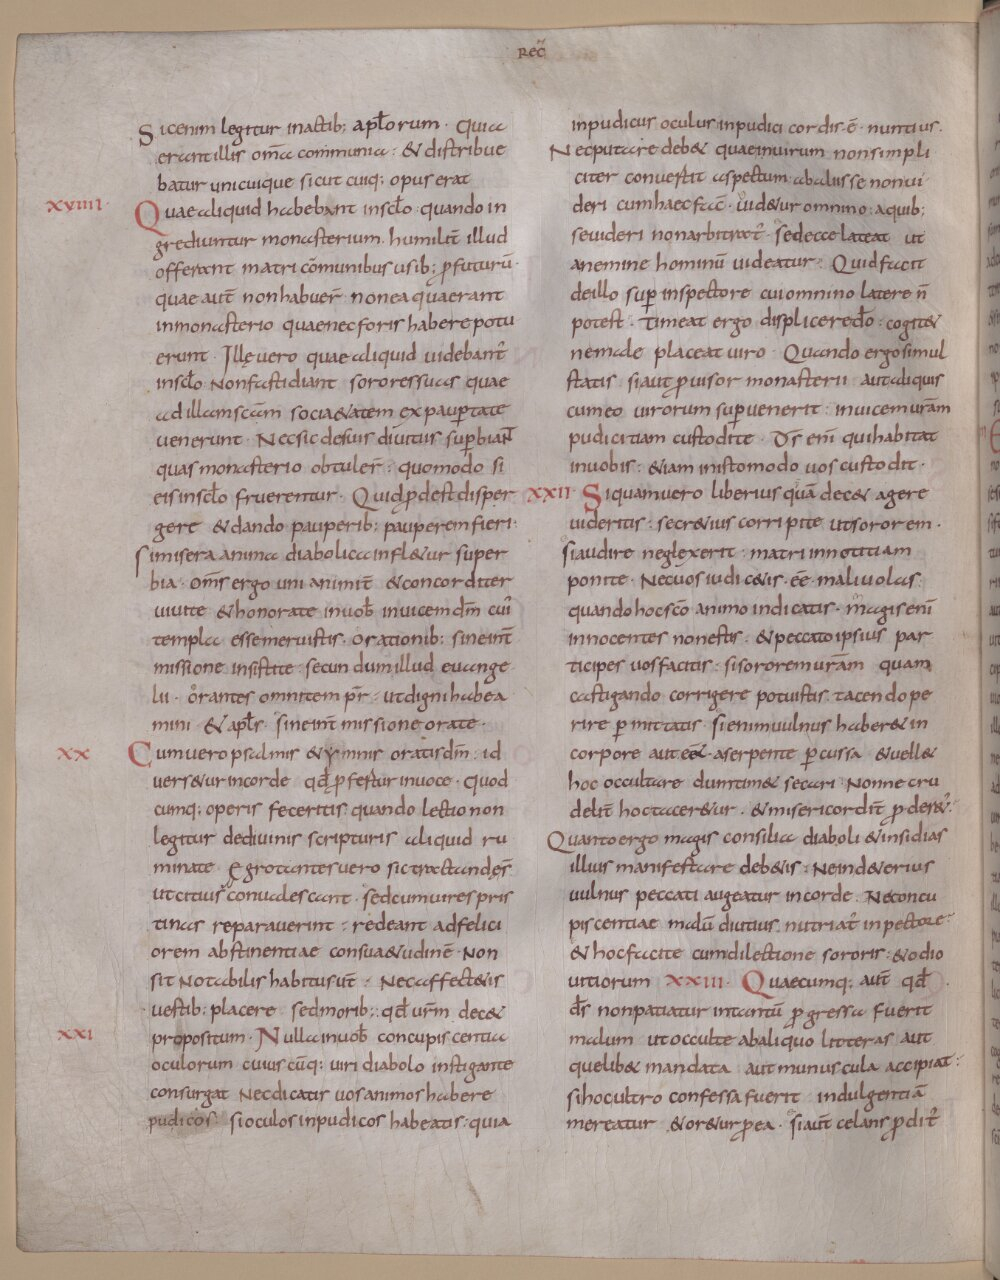 REC̃
Sicenim legitur inactib; apl̄orum · Quia
erant illis om̄a communia : & distribue
batur unicuique sicut cuiq; opus erat
XVIIII· Quae aliquid habebant insc̄lo quando in
grediuntur monasterium humilit̄ illud
offerant matri cōmunibus usib; ꝓfuturū ·
quae aut̄ non habuer̄ non ea quaerant
inmonasterio quae nec foris habere potu
erunt · Illę vero quae aliquid videbant᷑
insc̄lo Nonfastidiant sorores suas quae
ad illam sc̄am socia&atem ex paup̄tate
venerunt · Nec sic de suis divitiis sup̄biaNT
quas monasterio obtuler̄ : quomodo si
eis insc̄lo fruerentur · Quid ꝓdest disper
gere & dando pauperib; pauperem fieri ·
si misera anima diabolica infl&ur super
bia · Om̄s ergo unianimit̄ & concorditer
vivite & honorate invob̄ invicem dm̄ cui᷑
templa esse meruistis · orationib; sine int̄
missione insistite secundum illud euange
lii · orantes omni tempr̄ · ut digni habea
mini · & apl̄s · sine int̄missione orate ·
XX Cum vero psalmis & ymnis oratis dm̄ id
vers&ur in corde qd̄ ꝓfertur in uoce · Quod
cumq; operis feceritis quando lectio non
legitur de divinis scripturis aliquid ru
minate · Egrotantes vero sic tractandę s̄
ut citius convalescant · sed cum vires pris
tinas reparauerint : redeant ad felici
orem abstinentiae consua&udinē · Non
sit Notabilis habitus ur̄ · Nec affect&is
vestib; placere sed morib; · qd̄ ur̄m dec&
propositum · XXI Nulla in uob̄ concupiscentia
oculorum cuiuscūq; viri diabolo instigante
consurgat Nec dicatis vos animos habere
pudicos : si oculos inpudicos habeatis : quia
inpudicus oculus inpudici cordis · ē · nuntius ·
Nec putare deb& quae in virum non simpli
citer convertit aspectum : ab aliis se non vi
deri cum haec fac̄ · vid&ur omnino : a quib;
se videri non arbitrat᷑ · Sed ecce lateat ut
a nemine hominū videatur : Quid faciat
de illo sup̄inspectore cui omnino latere n̄
potest · Timeat ergo displicere dō : cogit&
ne male placeat viro · Quando ergo simul
statis · si aut̄ ꝓvisor monasterii aut aliquis
cum eo virorum sup̄venerit : invicem ur̄am
pudicitiam custodite · Ds̄ eni᷑ qui habitat
in vobis : &iam in isto modo vos custodit ·
XXII· Si quam vero liberius quā dec& agere
videritis : secr&ius corripite ut sororem ·
si audire neglexerit : matri in notitiam
ponite · Nec vos iudic&is · ēē · malivolas :
quando hoc sc̄o animo indicatis · magis eni᷑
innocentes non estis : & peccato ipsius par
ticipes vos facitis : si sororem ur̄am quam
castigando corrigere potuistis tacendo pe
rire p̄mittatis · Si enim vulnus haber& in
corpore aut eē& a serpente p̄cussa & vell&
hoc occultare dum tim& secari · Nonne cru
delit̄ hoc tacer&ur · & misericordit̄ ꝓder&᷑ ·
Quanto ergo magis consilia diaboli & insidias
illius manifestare deb&is : Ne ind&erius
vulnus peccati augeatur in corde · Ne concu
piscentiae malū diutius nutriat᷑ in pectore ·
& hoc facite cum dilectione sororis : & odio
vitiorum XXIII· Quaecumq; aut̄ qd̄
ds̄ non patiatur in tantū ꝓgressa fuerit
malum ut occulte ab aliquo litteras aut
quelib& mandata aut munuscula accipiat :
si hoc ultro confessa fuerit indulgentiā
mereatur & or&ur ꝓ ea · Si aut̄ celans ꝓdit᷑